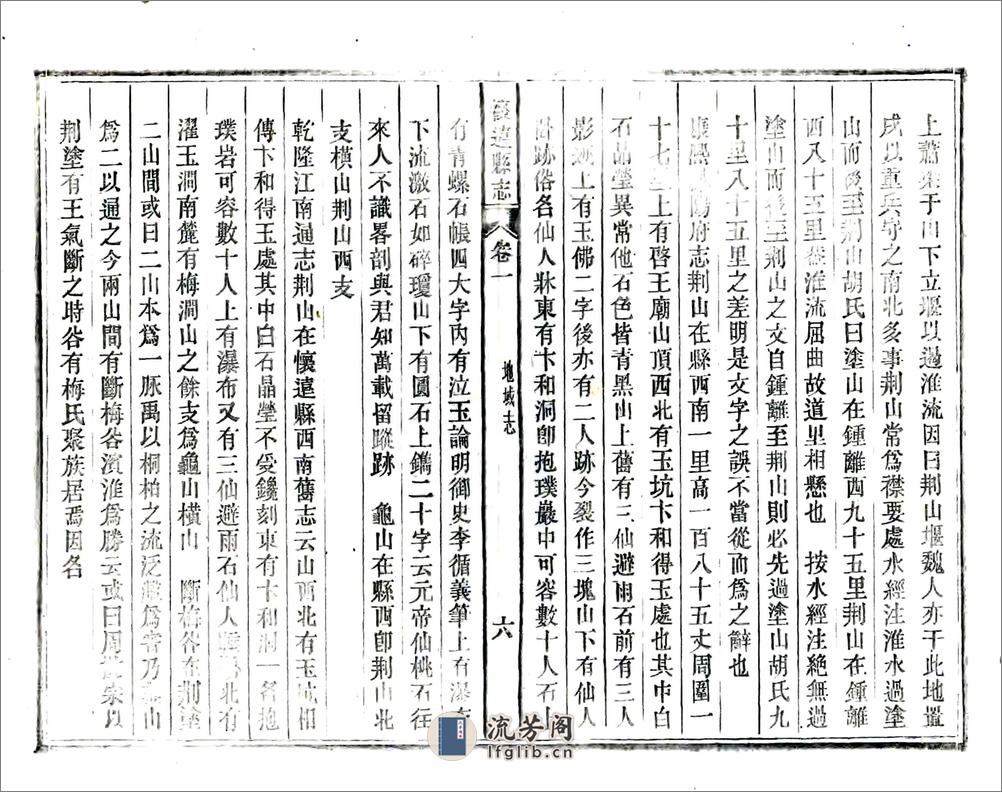 上蕭梁于山下立堰以遏淮流因曰荆山堰魏人亦于此地置
戍以重兵守之南北多事荆山常爲襟要處水經注淮水過塗
山而後至荆山胡氏曰塗山在鍾離西九十五里荆山在鍾離
西八十三里葢淮流屈曲故道里相懸也　按水經注絶無過
塗山而後至荆山之文自鍾離至荆山則必先過塗山胡氏九
十里八十五里之差明是文字之誤不當從而爲之辭也
康熙鳳陽府志荆山在縣西南一里高一百八十五丈周圍一
十七里上有啓王廟山頂西北有玉坑卞和得玉處也其中白
石晶瑩異常他石色皆青黑山上舊有三仙避雨石前有三人
影迹上有玉佛二字後亦有二人跡今裂作三塊山下有仙人
卧跡俗名仙人牀東有卞和洞卽抱璞巖中可容數十人石上
懷遠縣志
卷一
地域志
六
有青螺石帳四大字內有泣玉論明御史李循義筆上有瀑布
下流激石如碎瓊山下有圓石上鐫二十字云元帝仙桃石往
來人不識畧剖與君知萬載留蹤跡　龜山在縣西卽荆山北
支橫山荆山西支
乾隆江南通志荆山在懷遠縣西南舊志云山西北有玉坑相
傳卞和得玉處其中白石晶瑩不受鑱刻東有卞和洞一名抱
璞岩可容數十人上有瀑布又有三仙避雨石仙人北有
濯玉澗南麓有梅澗山之餘支爲龜山橫山　斷梅谷在荆塗
二山間或曰二山本爲一脈禹以桐柏之流泛濫爲害乃山
爲二以通之今兩山間有斷梅谷濱淮爲勝云或曰周世宗以
荆塗有王氣斷之時谷有梅氏聚族居焉因名
流芳阁
lfglib.com